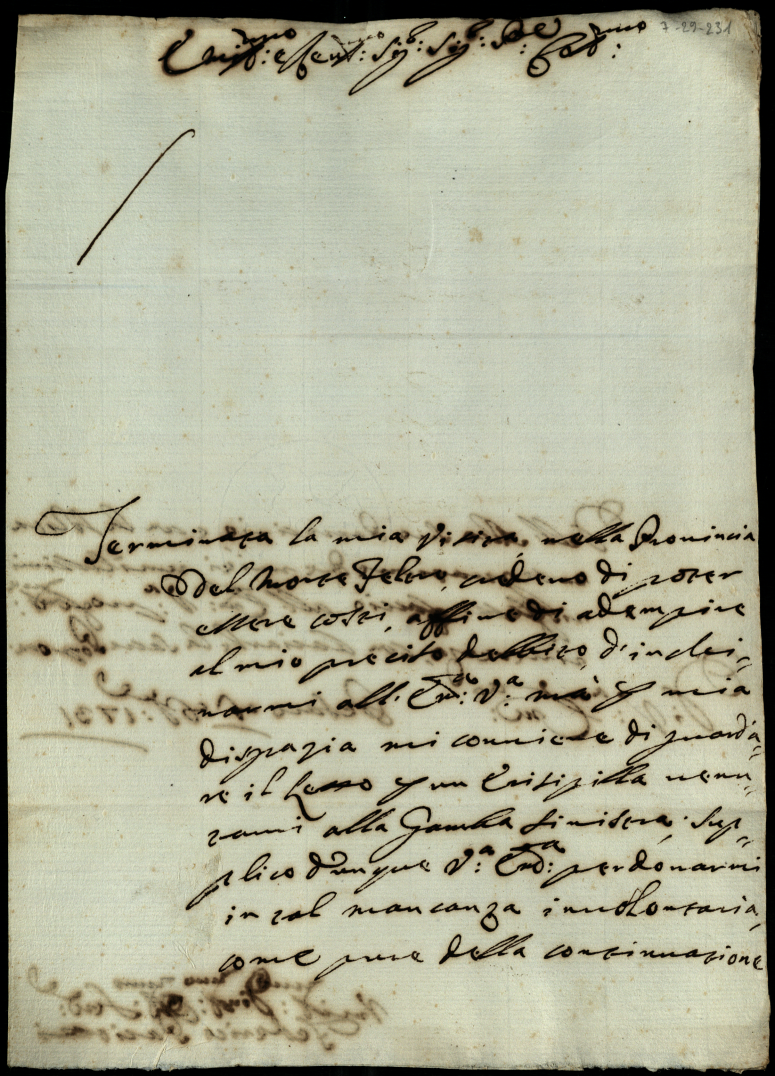 7-29-231
Emin:mo e Reu:mo Sig:r Sig:r P:rone Col:mo
Terminata la mia visita nella Prouincia
del Monte Feltre, credeuo di poter
essere costi, affine di adempire
al mio preciso debbito, d'inchi-
narmi all'Em:a V:a mà p mia
disgrazia mi conuiene di guarda-
re il letto p un Erisipilla uenu-
tami alla Gamba sinistra; sup-
plico dunque V:a Em:a perdonarmi
in tal mancanza inuolontaria,
come pure della continuazione